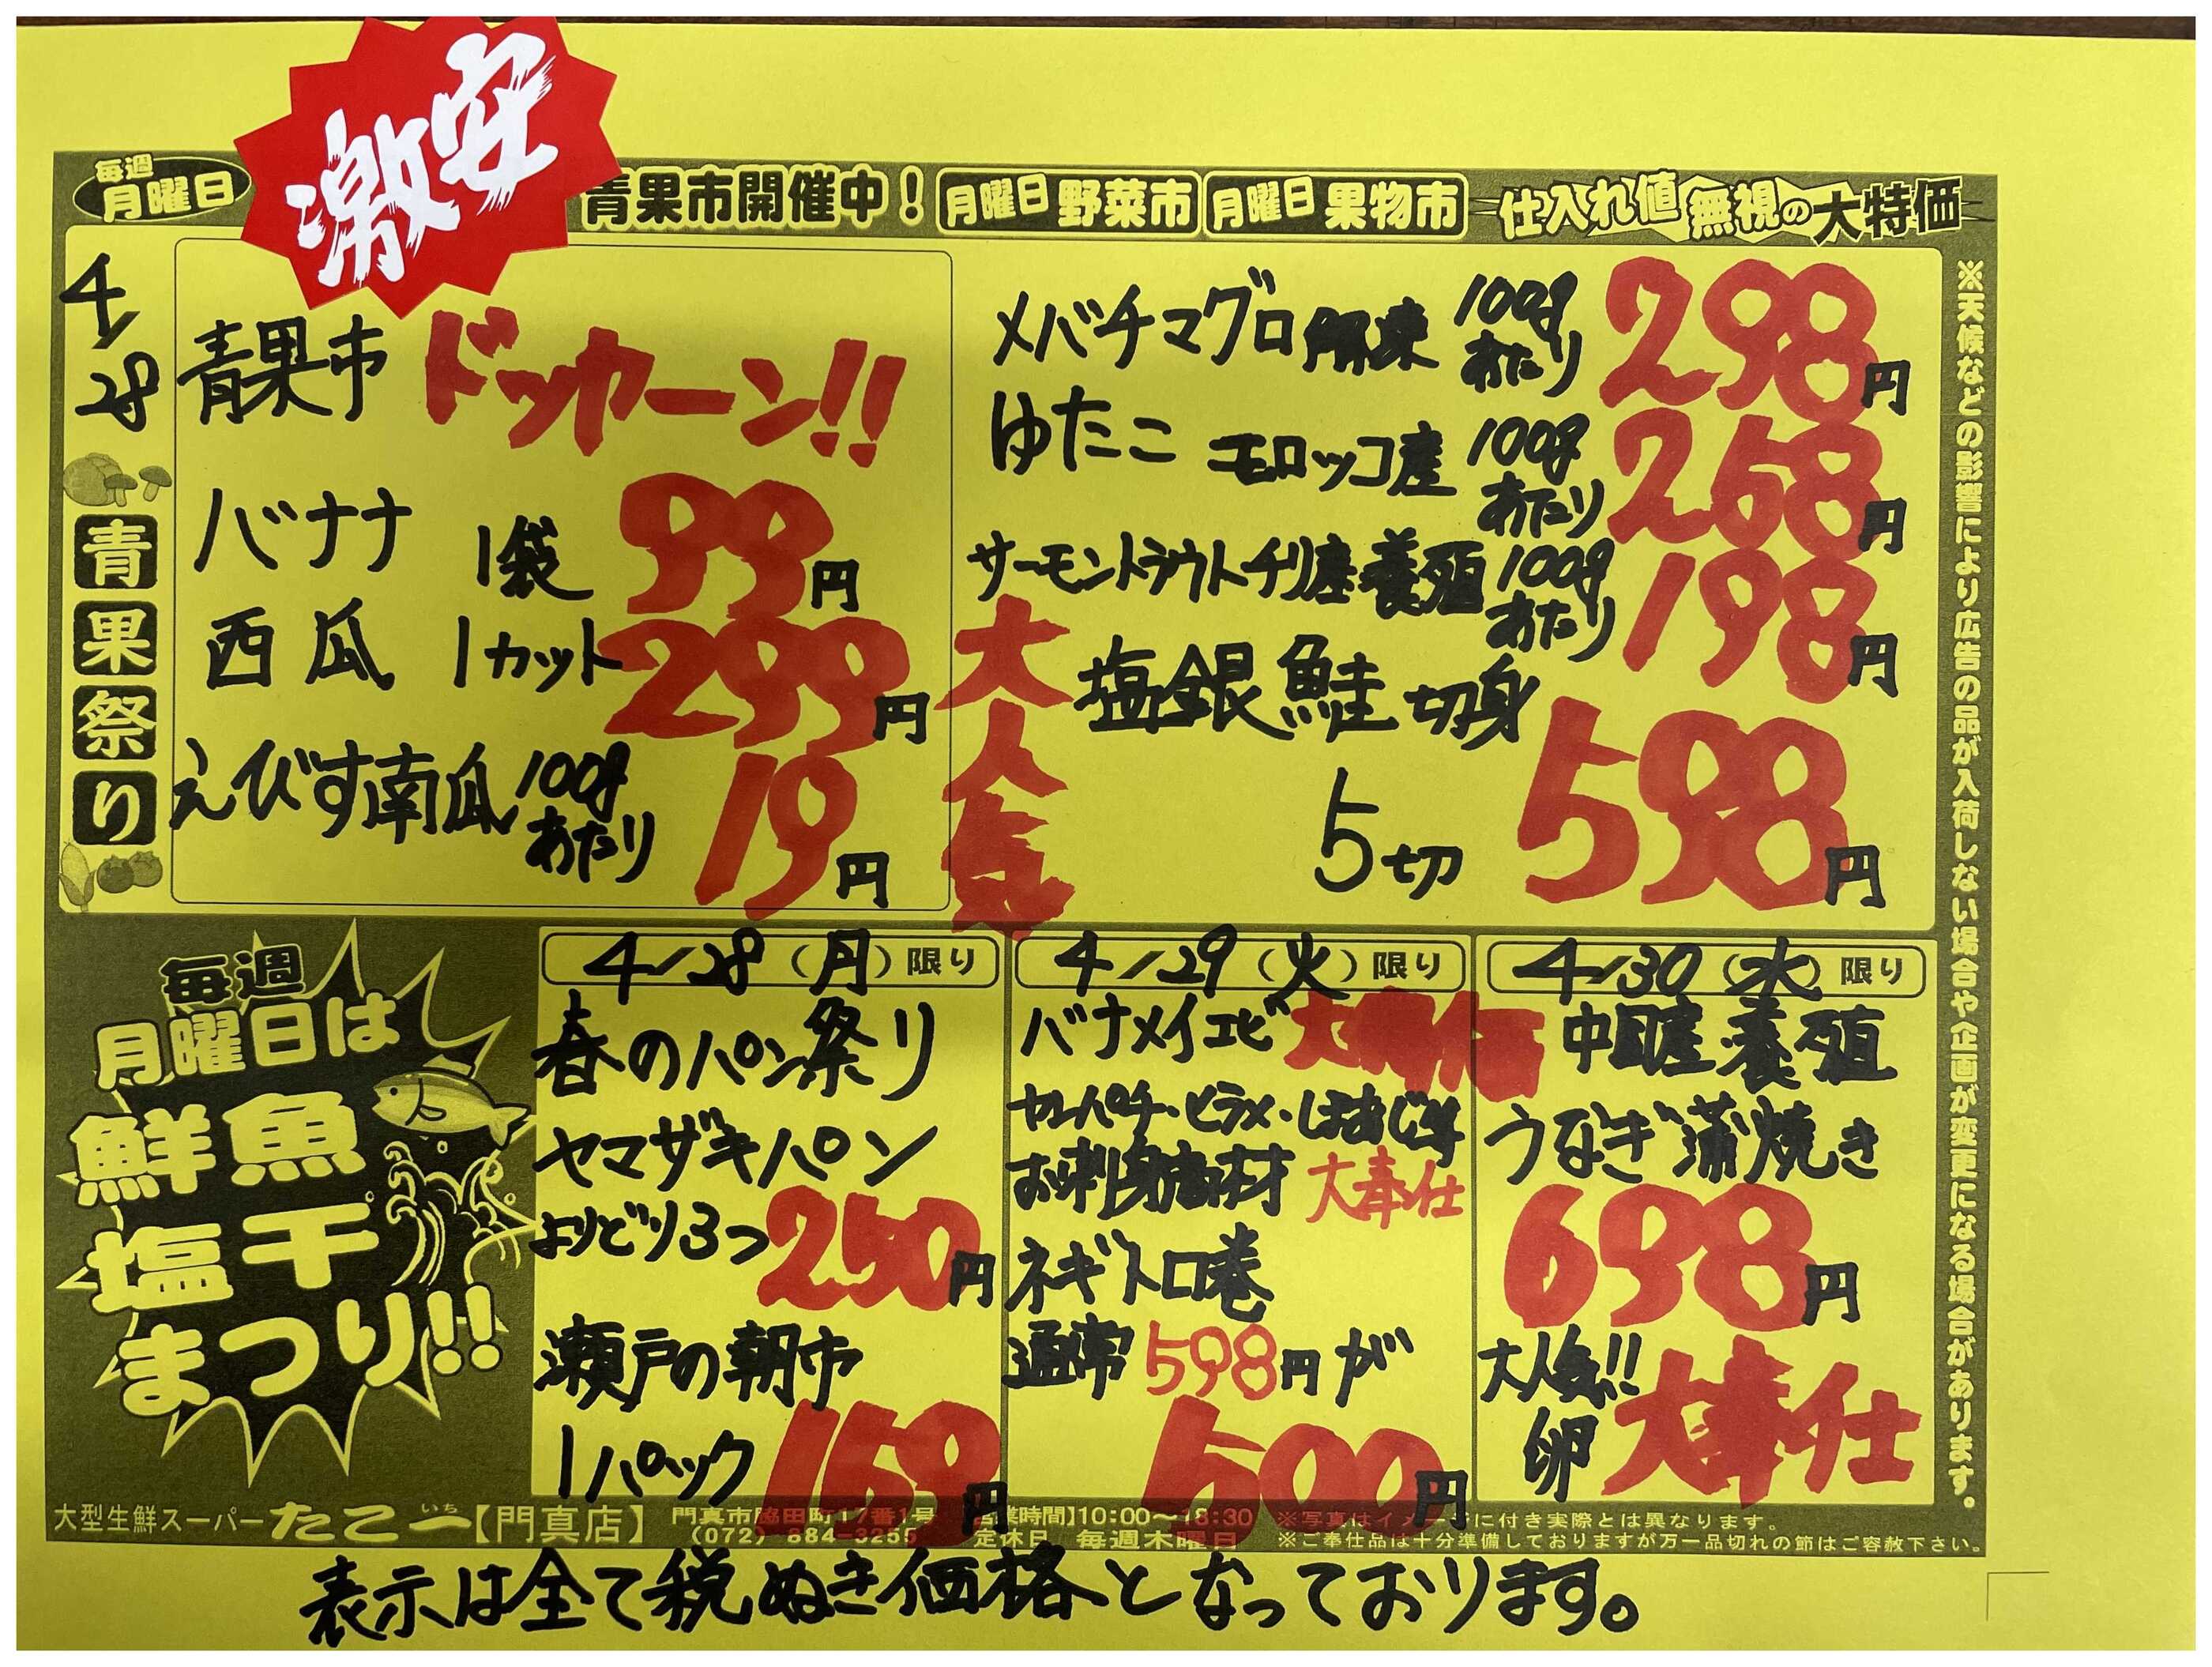 激安
毎週
月曜日
青果市開催中！
月曜日 野菜市
月曜日 果物市
仕入れ値無視の大特価
4/28
青果祭り
青果市 ドッカーン!!
バナナ 1袋 99円
西瓜 1カット 299円
えびす南瓜 100gあたり 19円
メバチマグロ 解凍 100gあたり 298円
ゆたこ モロッコ産 100gあたり 268円
サーモントラウトチリ産養殖 100gあたり 198円
大人気 塩銀鮭 切身
5切 598円
※天候などの影響により広告の品が入荷しない場合や企画が変更になる場合があります。
毎週
月曜日は
鮮魚
塩干
まつり!!
4/28（月）限り
春のパン祭り
ヤマザキパン
よりどり3つ 250円
瀬戸の朝市
1パック 159円
4/29（火）限り
バナメイエビ 大特価
カンパチ・ヒラメ・しまあじ等
お刺身商材 大奉仕
ネギトロ巻
通常598円が
500円
4/30（水）限り
中国産養殖
うなぎ蒲焼き
698円
大人気!!
卵 大奉仕
大型生鮮スーパー たこ一 いち 【門真店】
門真市脇田町17番1号
（072）884-3255
営業時間】10:00〜18:30
定休日 毎週木曜日
※写真はイメージに付き実際とは異なります。
※ご奉仕品は十分準備しておりますが万一品切れの節はご容赦下さい。
表示は全て税ぬき価格となっております。